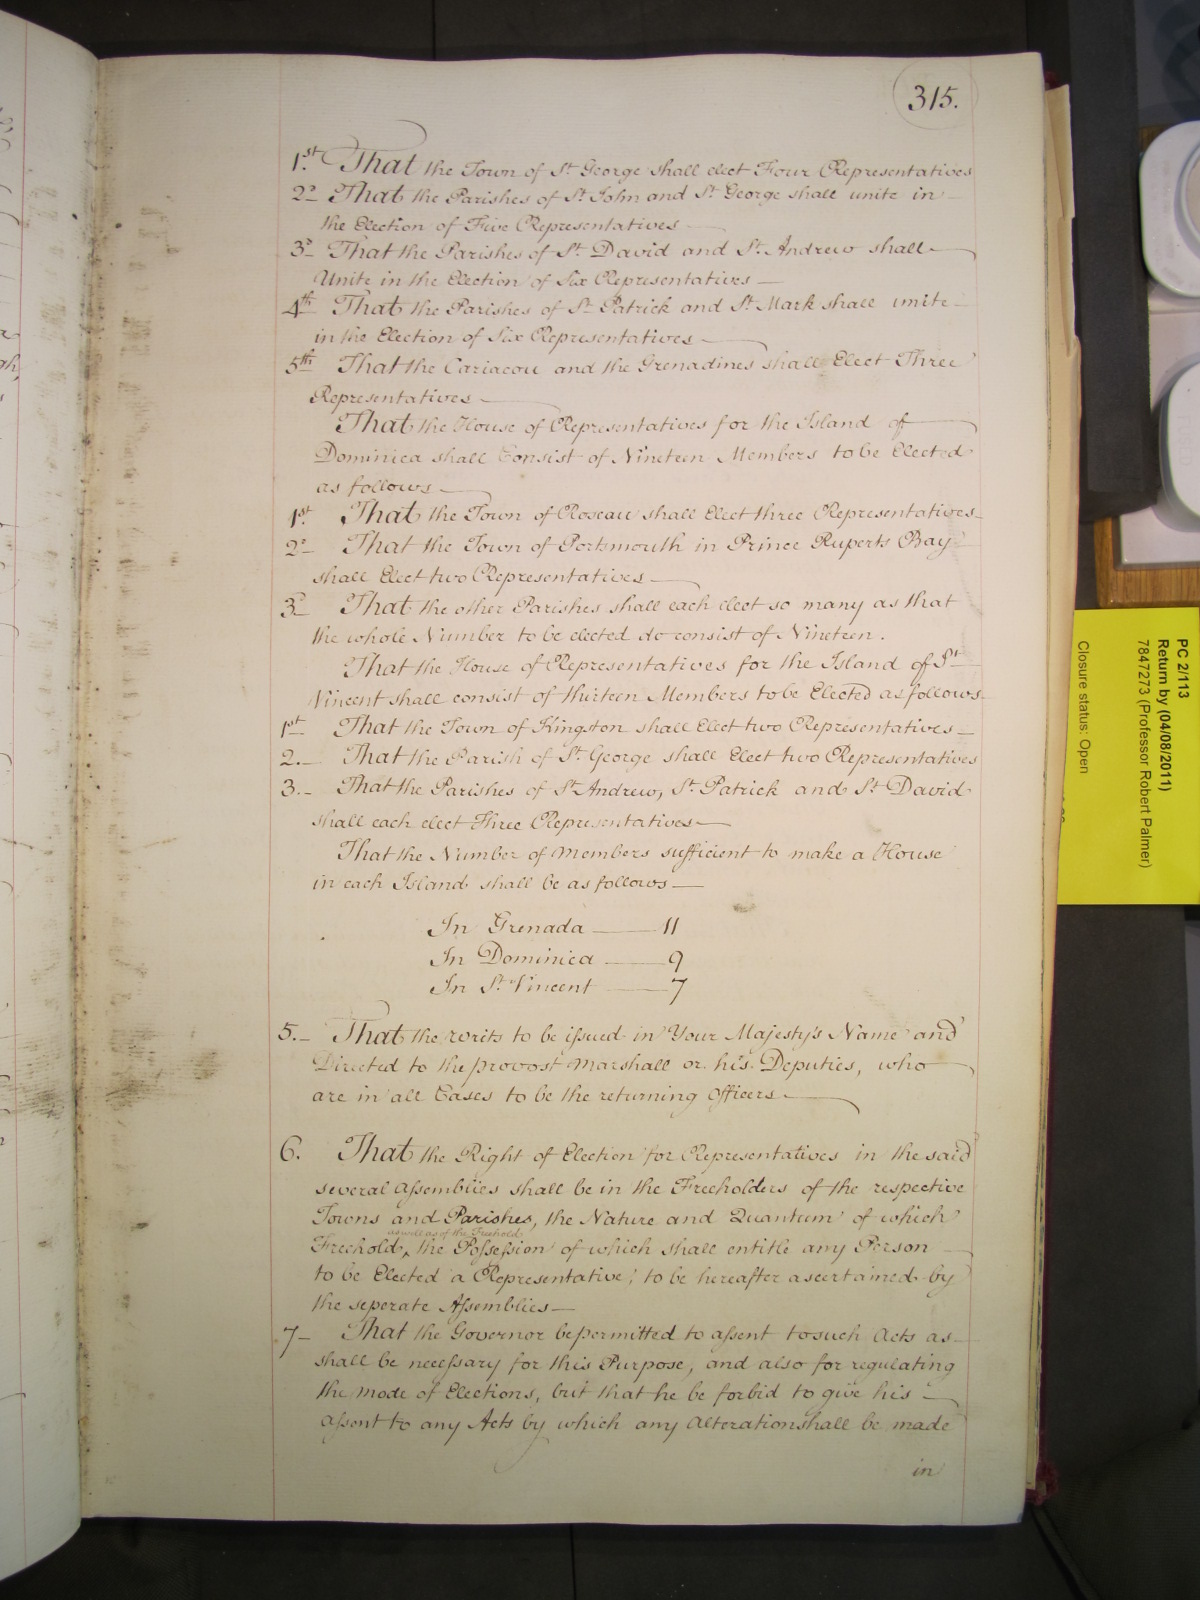 315.
1st. That the Town of St. George shall elect Four Representatives
2d That the Parishes of St. John and St. George shall unite in
the Election of Five Representatives
3d That the Parishes of St. David and St. Andrew shall
Unite in the Election of Six Representatives
4th That the Parishes of St. Patrick and St. Mark shall unite
in the Election of Six Representatives
5th That the Cariacou and the Grenadines shall Elect Three
Representatives
That the House of Representatives for the Island of
Dominica shall Consist of Nineteen Members to be Elected
as follows
1st. That the Town of Roseau shall Elect three Representatives
2d That the Town of Portsmouth in Prince Ruperts Bay
shall Elect two Representatives
3d That the other Parishes shall each elect so many as that
the whole Number to be elected do consist of Nineteen.
That the House of Representatives for the Island of St.
Vincent shall consist of thirteen Members to be Elected as follows
1st That the Town of Kingston shall Elect two Representatives
2. That the Parish of St. George shall Elect two Representatives
3. That the Parishes of St. Andrew, St. Patrick and St. David
shall each elect Three Representatives
That the Number of Members sufficient to make a House
in each Island shall be as follows
In Grenada 11
In Dominica 9
In St. Vincent 7
5. That the writs to be issued in Your Majesty's Name and
Directed to the provost Marshall or his Deputies, who
are in all Cases to be the returning Officers
6. That the Right of Election for Representatives in the said
several Assemblies shall be in the Freeholders of the respective
Towns and Parishes, the Nature and Quantum of which
as well as of the Freehold
Freehold, ^ the Possession of which shall entitle any Person
to be Elected a Representative; to be hereafter ascertained by
the seperate Assemblies
7 That the Governor be permitted to assent to such Acts as
shall be necessary for this Purpose, and also for regulating
the mode of Elections, but that he be forbid to give his
assent to any Acts by which any Alteration shall be made
in
PC 2/113
Return by (04/08/2011)
7847273 (Professor Robert Palmer)
Closure status: Open